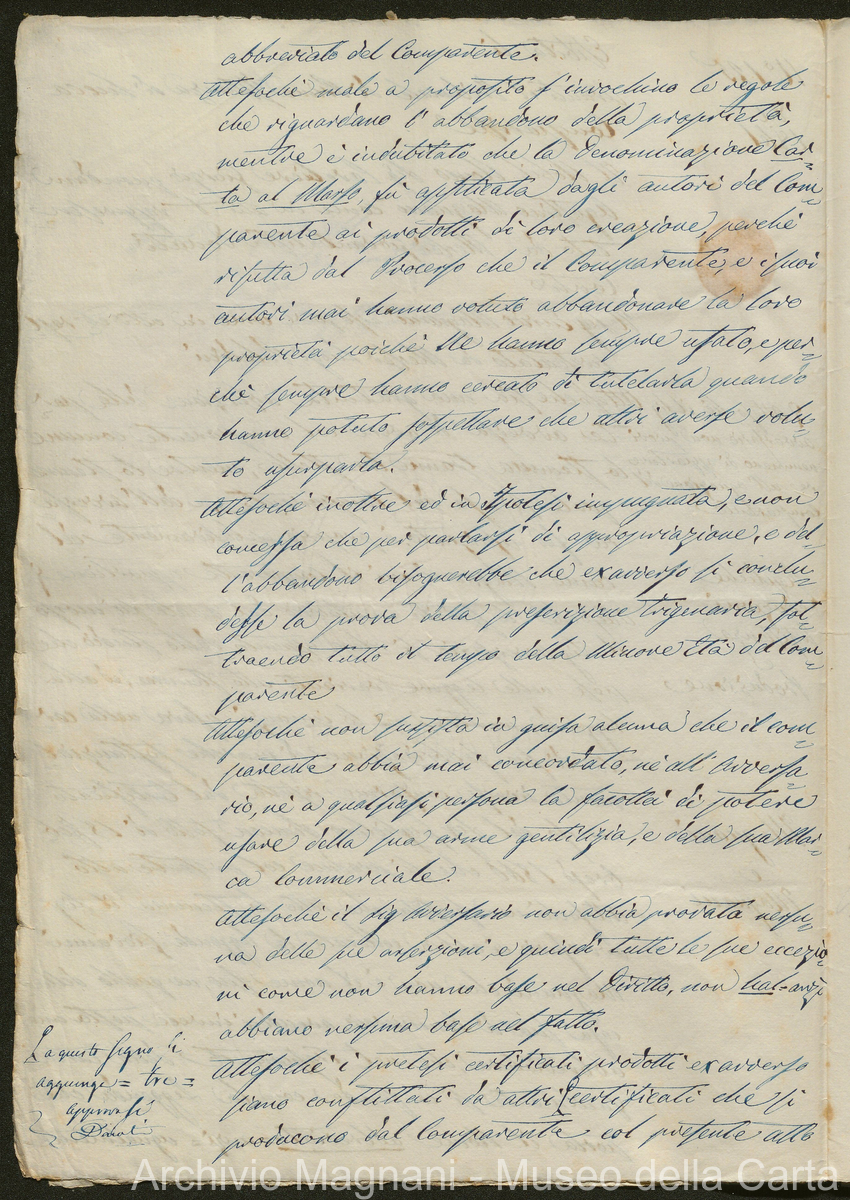 abbreviato del Comparente.
Attesochè male a proposito s'invochino le regole
che riguardano l'abbandono della proprietà,
mentre è indubitato che la Denominazione Car=
ta al Masso, fù applicata dagli autori del Com=
parente ai prodotti di loro creazione, perchè
risulta dal Processo che il Comparente, e i suoi
autori mai hanno voluto abbandonare la loro
proprietà poichè Ne hanno sempre usato, e per=
chè sempre hanno cercato di tutelarla quando
hanno potuto sospettare che altri avesse volu=
to usurparla.
Attesochè inoltre ed in Ipotesi impugnata, e non
concessa che per parlarsi di appropriazione, e del=
l'abbandono bisognerebbe che exadverso si conclu=
desse la prova della prescrizione trigenaria, sot=
traendo tutto il tempo della Minore Età del Com=
parente
Attesochè non sussista in guisa alcuna che il com=
parente abbia mai concordato, nè all'Avversa=
rio, nè a qualsiasi persona la facoltà di potere
usare della sua arme gentilizia, e della sua Mar=
ca Commerciale.
Attesochè il Sig Avversario non abbia provata nessu=
na delle sue asserzioni, e quindi tutte le sue eccezio=
ni come non hanno base nel Diritto, non anzi
abbiano nessuna base nel fatto.
Attesochè i pretesi certificati prodotti exadverso
siano conflittati da altri [certificati che si
producono dal Comparente col presente atto
[a questo segno si
aggiunge = tre =
approvasi
Archivio Magnani - Museo della Carta